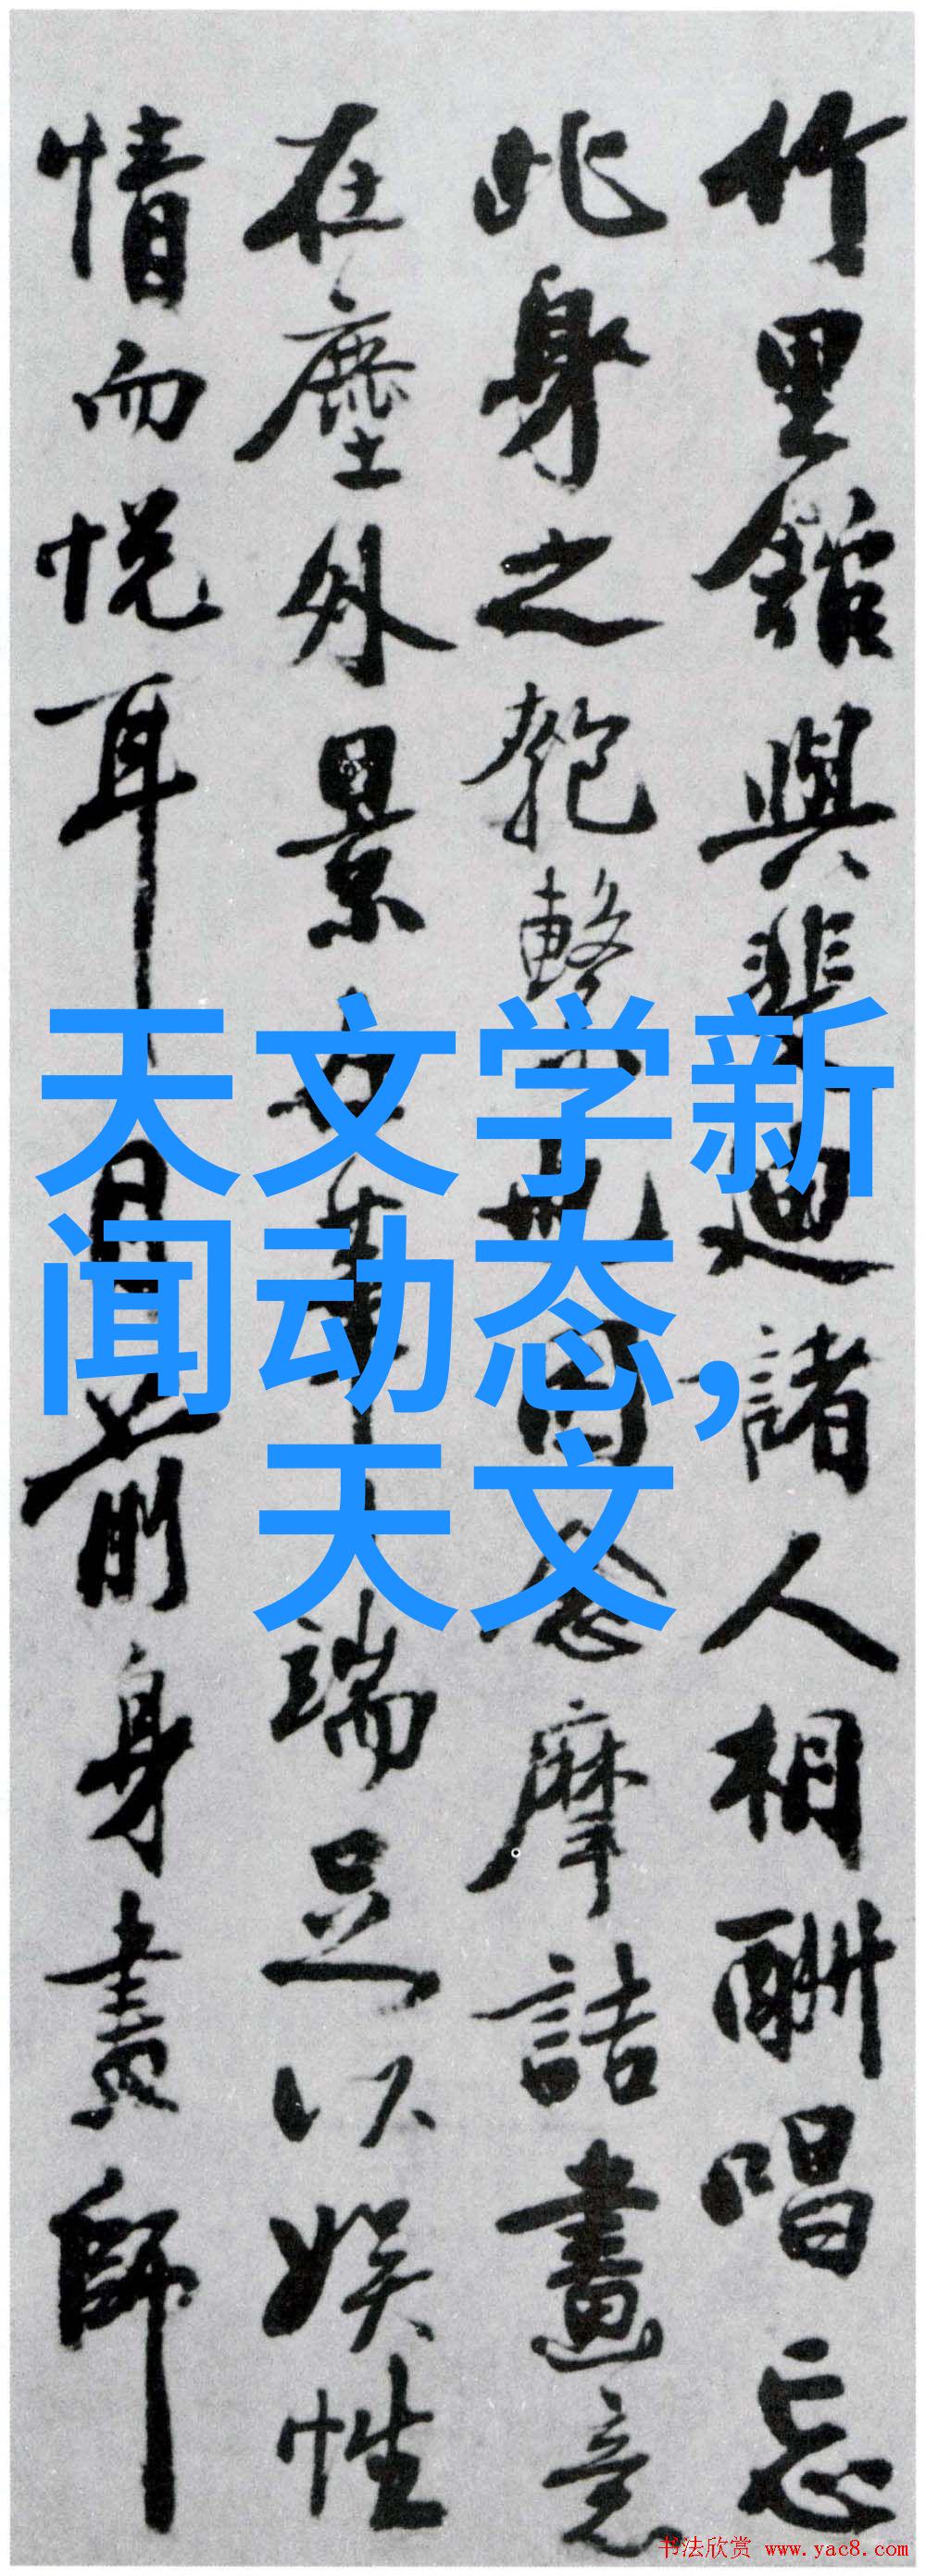 竹里館與裴迪諸人相酬唱忘
此身之匏繫也因念摩詰畫意
在塵外景筆端足以娛性
情而悅耳目前身畫師
天文学新
闻动态,
天文
书法欣赏 www.yac8.com